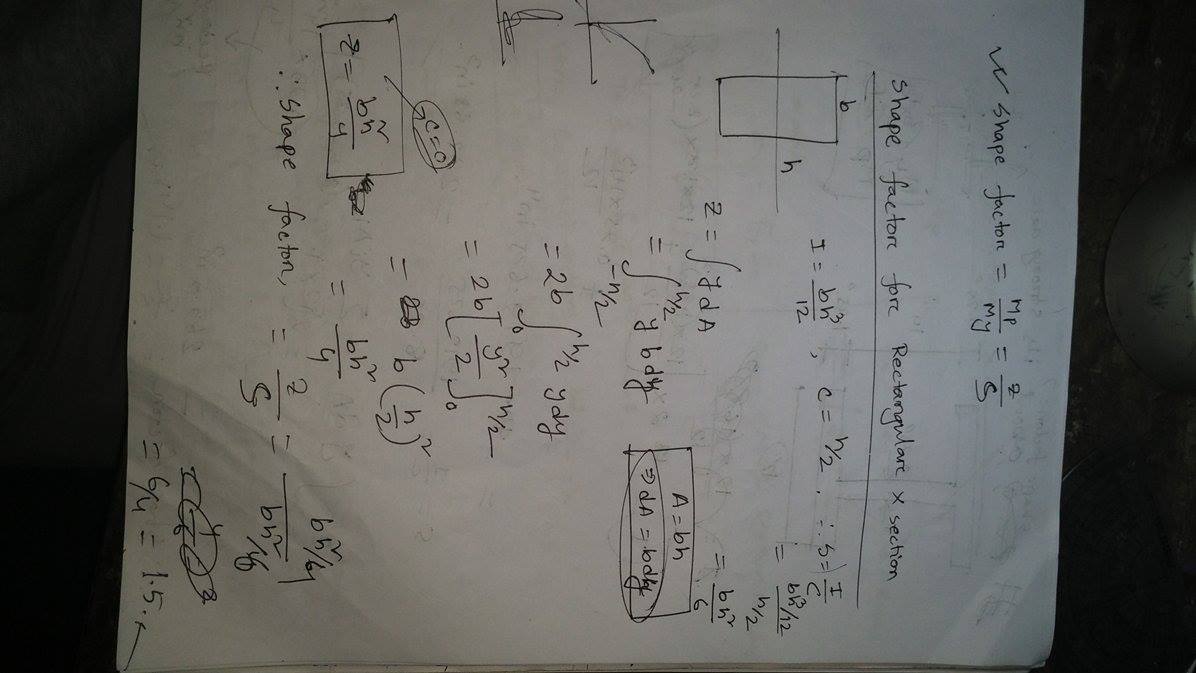 ✓ Shape factorc = Mp/My = Z/S
Shape factorc forc Rectangularc X section
b
h
I = bh³/12 , c = h/2 . ∴ S = I/c
= bh³/12 / h/2
= bh²/6
Z = ∫ y dA
= ∫_{-h/2}^{h/2} y bdy
A = bh
⇒ dA = bdy
= 2b ∫_0^{h/2} y dy
= 2b [y²/2]_0^{h/2}
= b (h/2)²
= bh²/4
c=0
Z = bh²/4
∴ Shape factor, = Z/S = bh²/4 / bh²/6
= 6/4 = 1.5.